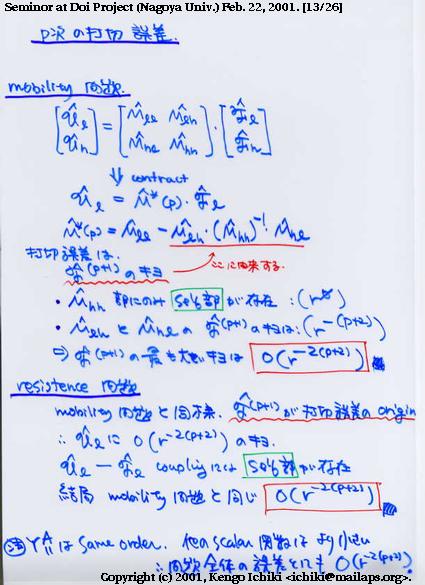 Seminar at Doi Project (Nagoya Univ.) Feb. 22, 2001. [13/26]
p次の打切誤差.
mobility 問題.
[û_l û_n] = [M̂_ll M̂_ln M̂_nl M̂_nn] · [F̂_l F̂_n]
⇓ contract
û_l = M̂*(p) · F̂_l
M̂*(p) = M̂_ll − M̂_ln · (M̂_nn)⁻¹ · M̂_nl
打切誤差は、
F̂^(p+1) のキヨ → ここに由来する.
・M̂_nn 部にのみ self部 が存在 : (r⁰)
・M̂_ln と M̂_nl の F̂^(p+1) のキヨは : (r^-(p+2))
⇒ F̂^(p+1) の最も大きいキヨは O(r^-2(p+2))
resistence 問題
mobility 問題と同様、F̂^(p+1) が打切誤差の origin
∴ û_l に O(r^-2(p+2)) のキヨ.
û_l − F̂_l coupling には self部 が存在
結局 mobility 問題と同じ O(r^-2(p+2))
注 Y^A_11 は same order. 他の scalar 関数はより小さい
∴ 問題全体の誤差としても O(r^-2(p+2))
Copyright (c) 2001, Kengo Ichiki <ichiki@mailaps.org>.